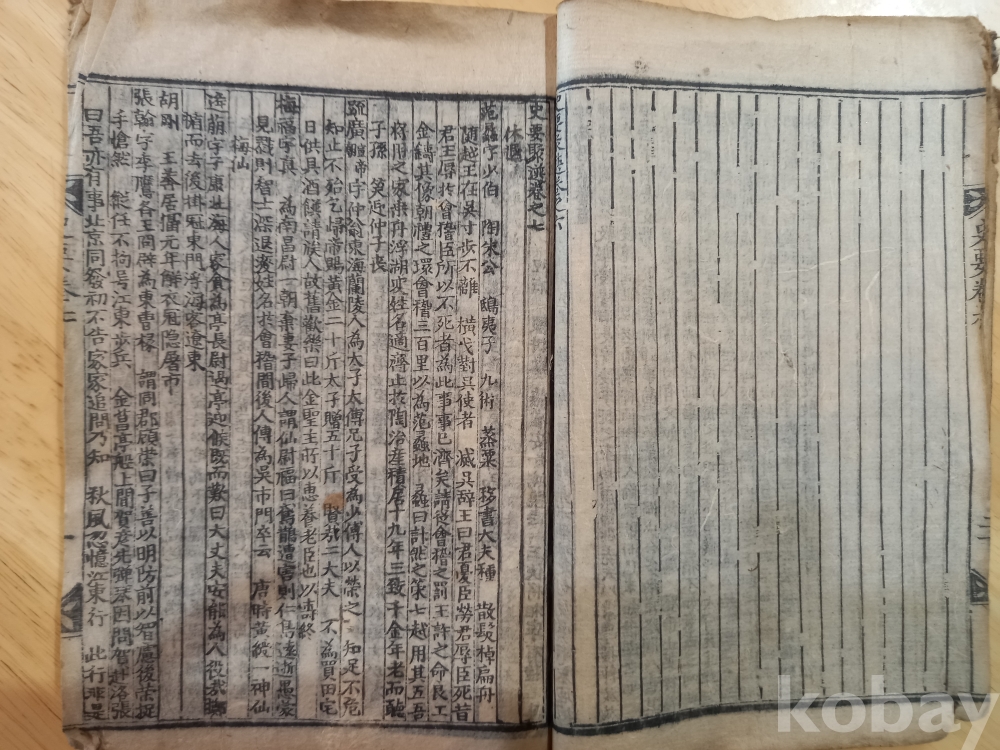 史要聚選卷之七
休退
范蠡字少伯 陶朱公 鴟夷子 九術 蒸粟 移書大夫種 散髮棹扁舟
隨越王在吳寸步不離 橫戈對吳使者 滅吳辞王曰君憂臣勞君辱臣死昔
君王辱於會稽臣所以不死者為此事事已濟矣請從會稽之罰王許之命良工
金鑄其像朝禮之環會稽三百里以為范蠡地 蠡曰計然之策七越用其五吾
將用之家乘舟浮湖变姓名適齊止於陶治產積居十九年三致千金年老而聽
子孫
疏廣 字仲翁東海蘭陵人為太子太傅兄子受為少傅人以榮之 知足不危
知止不殆乞歸帝賜黃金二十斤太子贈五十斤 賢哉二大夫 不為買田宅
日供具酒饌請族人故舊歡樂曰此金聖主所以惠養老臣也以壽終
梅福字真 為南昌尉一朝棄妻子歸人謂仙尉福曰 遭害則仁 遠逝愚
見 則智士深退变姓名於會稽間後人傳為吳市門卒云 唐時黃 一神仙
梅仙
逄萠字子康北海人家貧為亭長尉過亭迎 既而歎曰大丈夫安能為人役哉
而去後掛冠東門浮海客遼東
胡剛 王莽居攝元年解衣冠隐屠市
張翰字季鷹 王冏辟為東曹掾 謂同郡顧榮曰子善以明防前以智慮後榮捉
手愴然 縱任不拘号江東步兵 金昌亭船上聞賀彦先彈琹因問賀赴洛張
曰吾亦有事北京同發初不告家家追問乃知 秋風忽憶江東行 此行非是
史要卷六
kobay